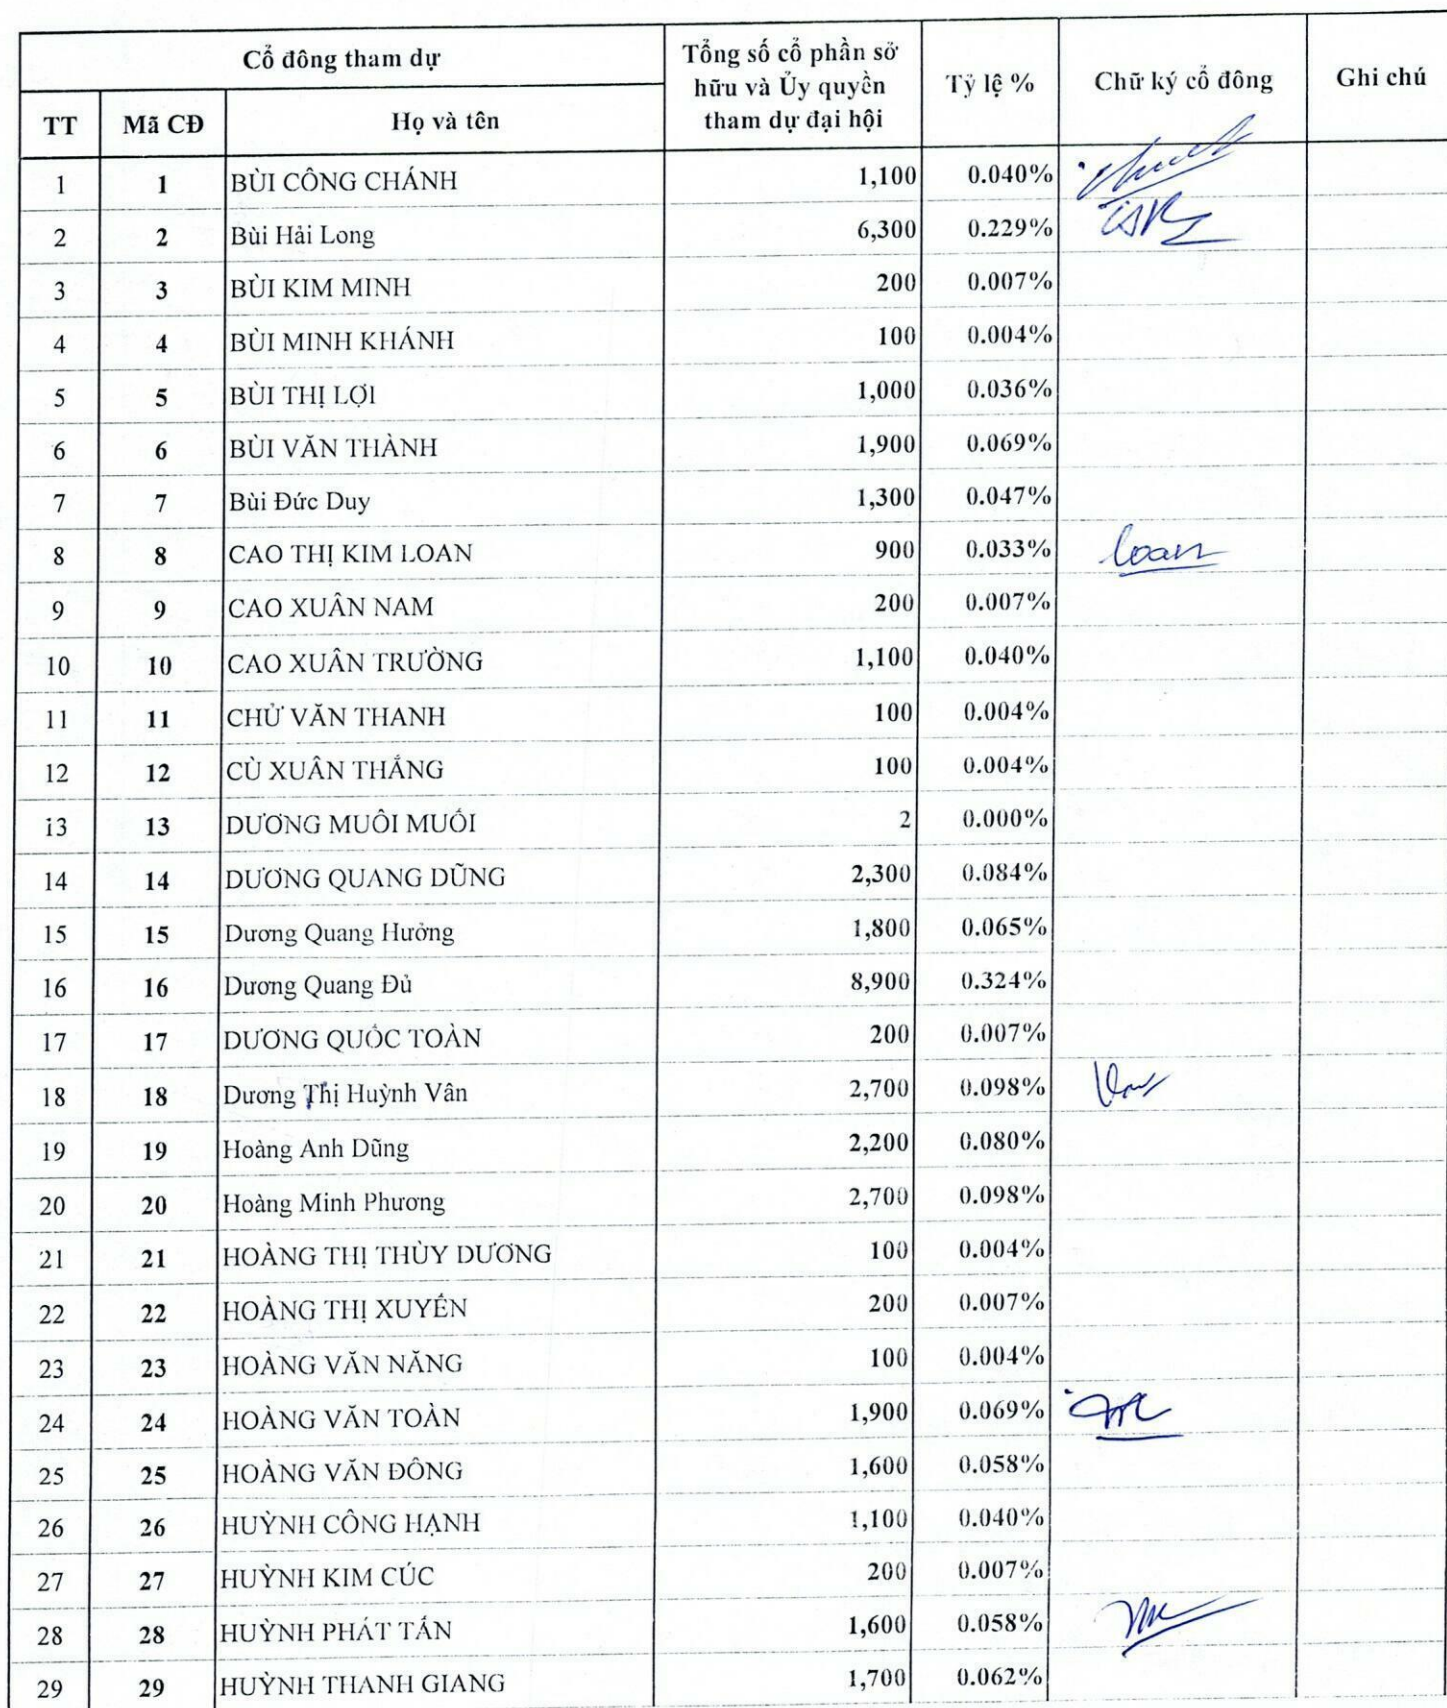 Cổ đông tham dự
Tổng số cổ phần sở hữu và Ủy quyền tham dự đại hội
Tỷ lệ %
Chữ ký cổ đông
Ghi chú
TT Mã CĐ Họ và tên
1 1 BÙI CÔNG CHÁNH 1,100 0.040%
2 2 Bùi Hải Long 6,300 0.229%
3 3 BÙI KIM MINH 200 0.007%
4 4 BÙI MINH KHÁNH 100 0.004%
5 5 BÙI THỊ LỢI 1,000 0.036%
6 6 BÙI VĂN THÀNH 1,900 0.069%
7 7 Bùi Đức Duy 1,300 0.047%
8 8 CAO THỊ KIM LOAN 900 0.033% Loan
9 9 CAO XUÂN NAM 200 0.007%
10 10 CAO XUÂN TRƯỜNG 1,100 0.040%
11 11 CHỬ VĂN THANH 100 0.004%
12 12 CÙ XUÂN THẮNG 100 0.004%
13 13 DƯƠNG MUÔI MUỐI 2 0.000%
14 14 DƯƠNG QUANG DŨNG 2,300 0.084%
15 15 Dương Quang Hưởng 1,800 0.065%
16 16 Dương Quang Đủ 8,900 0.324%
17 17 DƯƠNG QUỐC TOÀN 200 0.007%
18 18 Dương Thị Huỳnh Vân 2,700 0.098%
19 19 Hoàng Anh Dũng 2,200 0.080%
20 20 Hoàng Minh Phương 2,700 0.098%
21 21 HOÀNG THỊ THÙY DƯƠNG 100 0.004%
22 22 HOÀNG THỊ XUYẾN 200 0.007%
23 23 HOÀNG VĂN NĂNG 100 0.004%
24 24 HOÀNG VĂN TOÀN 1,900 0.069%
25 25 HOÀNG VĂN ĐÔNG 1,600 0.058%
26 26 HUỲNH CÔNG HẠNH 1,100 0.040%
27 27 HUỲNH KIM CÚC 200 0.007%
28 28 HUỲNH PHÁT TẤN 1,600 0.058%
29 29 HUỲNH THANH GIANG 1,700 0.062%